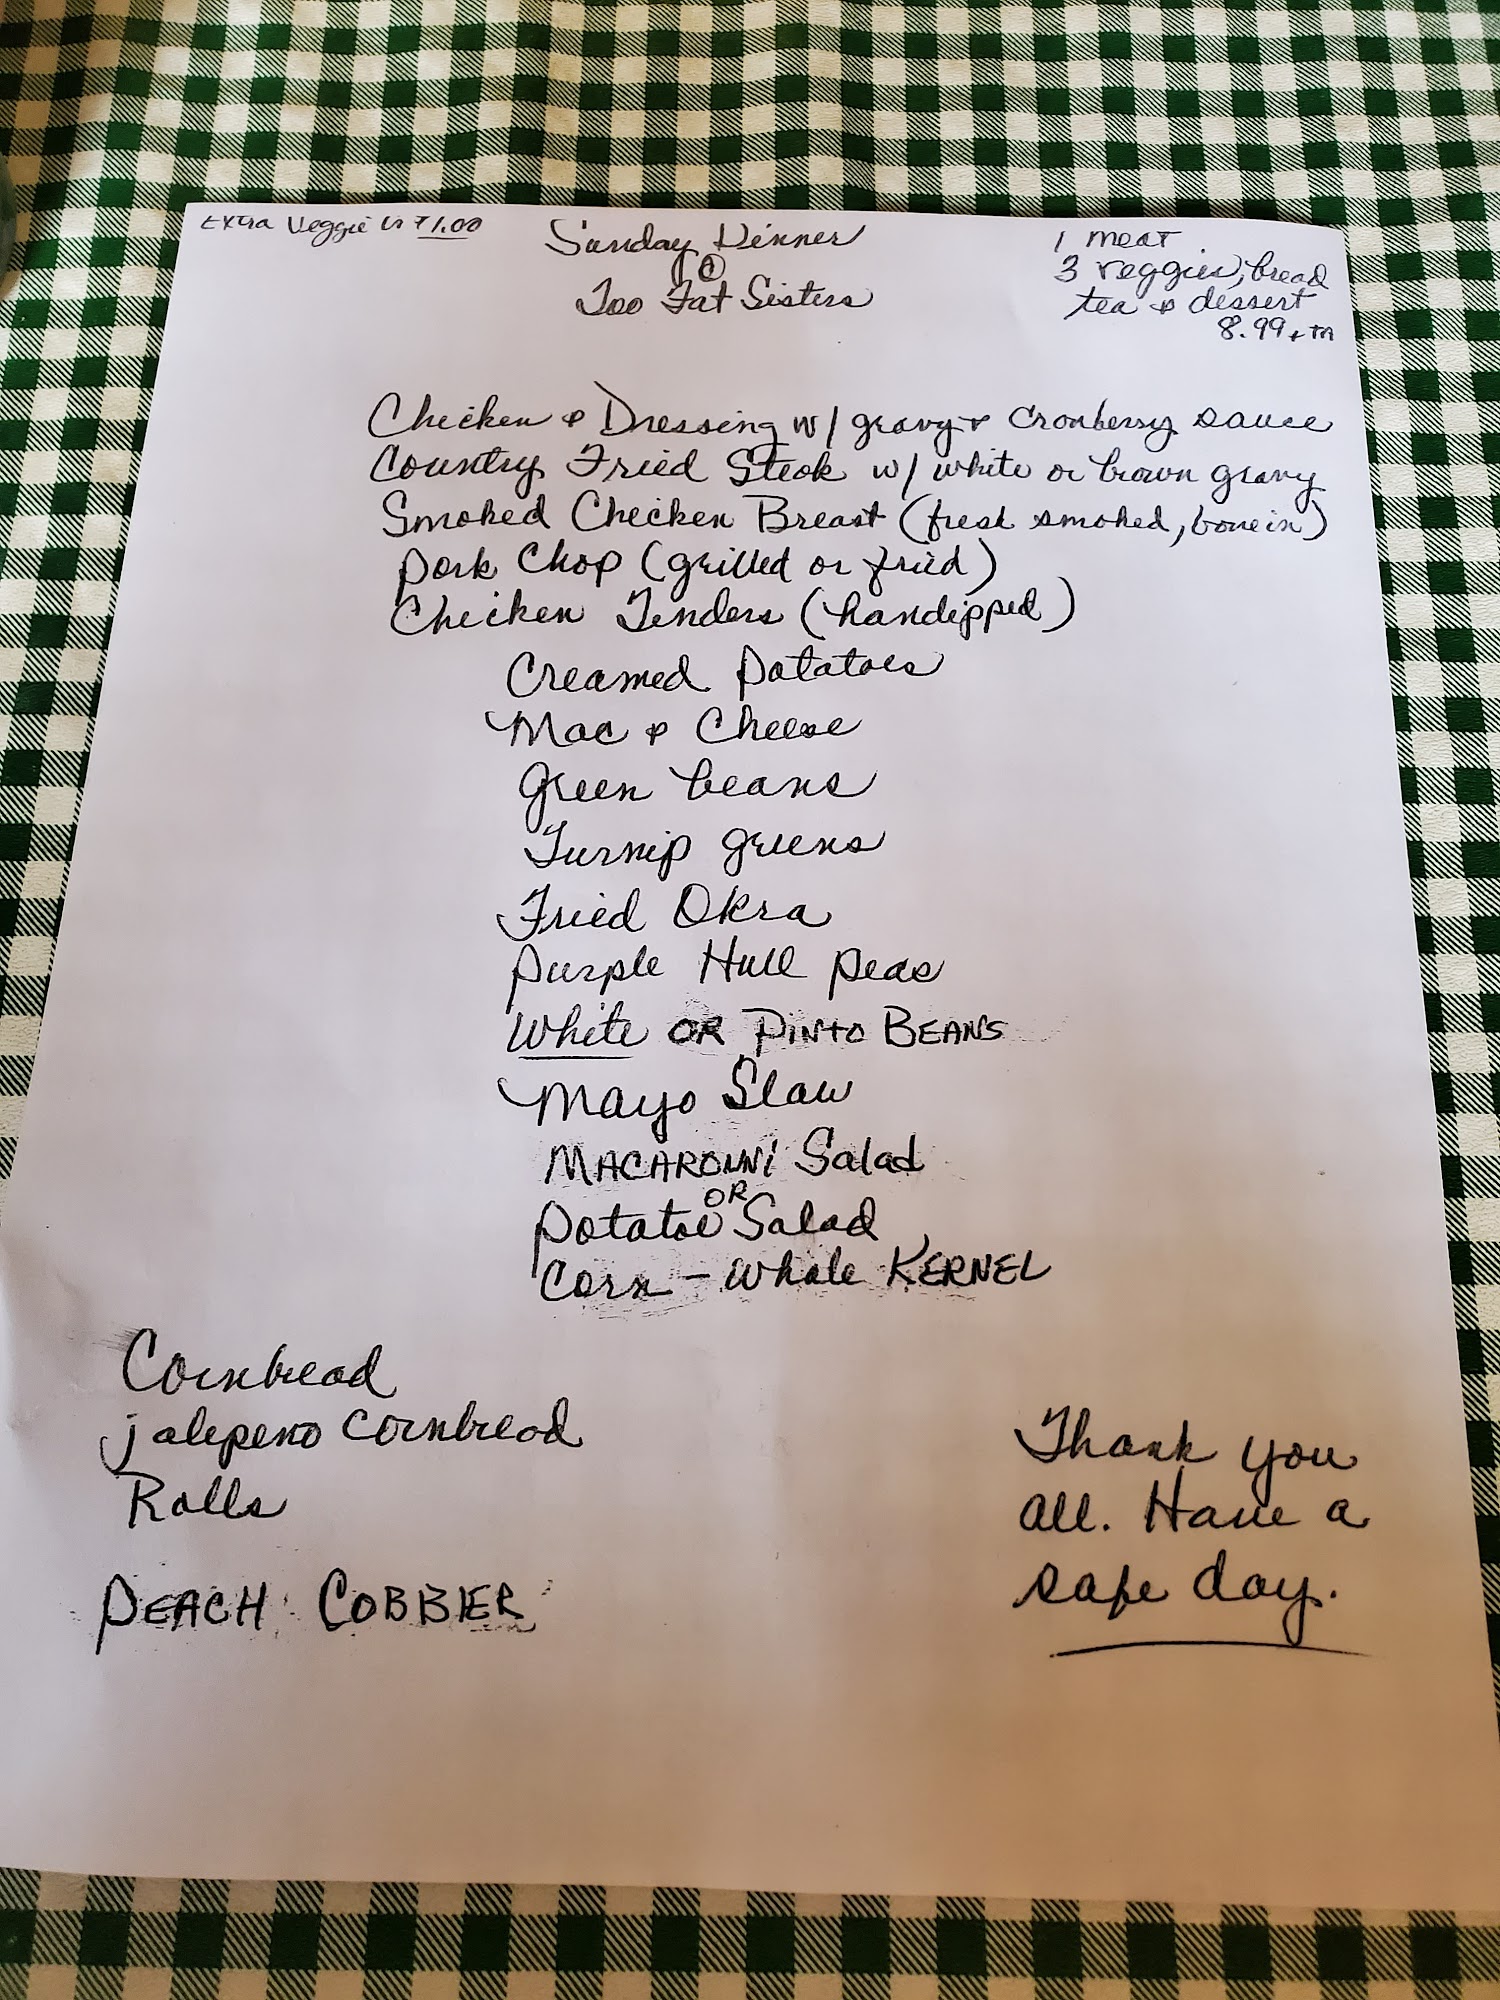 Extra Veggie is $1.00
Sunday Dinner
@
Too Fat Sisters
1 meat
3 veggies, bread
tea & dessert
8.99 + tx
Chicken & Dressing w/ gravy & Cranberry sauce
Country Fried Steak w/ white or brown gravy
Smoked Chicken Breast (fresh smoked, bone in)
Pork Chop (grilled or fried)
Chicken Tenders (handipped)
Creamed Potatoes
Mac & Cheese
Green beans
Turnip greens
Fried Okra
Purple Hull Peas
White OR PINTO BEANS
Mayo Slaw
MACARONNi Salad
OR
Potatoe Salad
Corn - Whole KERNEL
Cornbread
jalepeno cornbread
Rolls
PEACH COBBLER
Thank you
all. Have a
safe day.